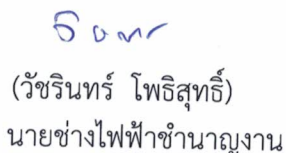 (วัชรินทร์ โพธิสุทธิ์)
นายช่างไฟฟ้าชำนาญงาน